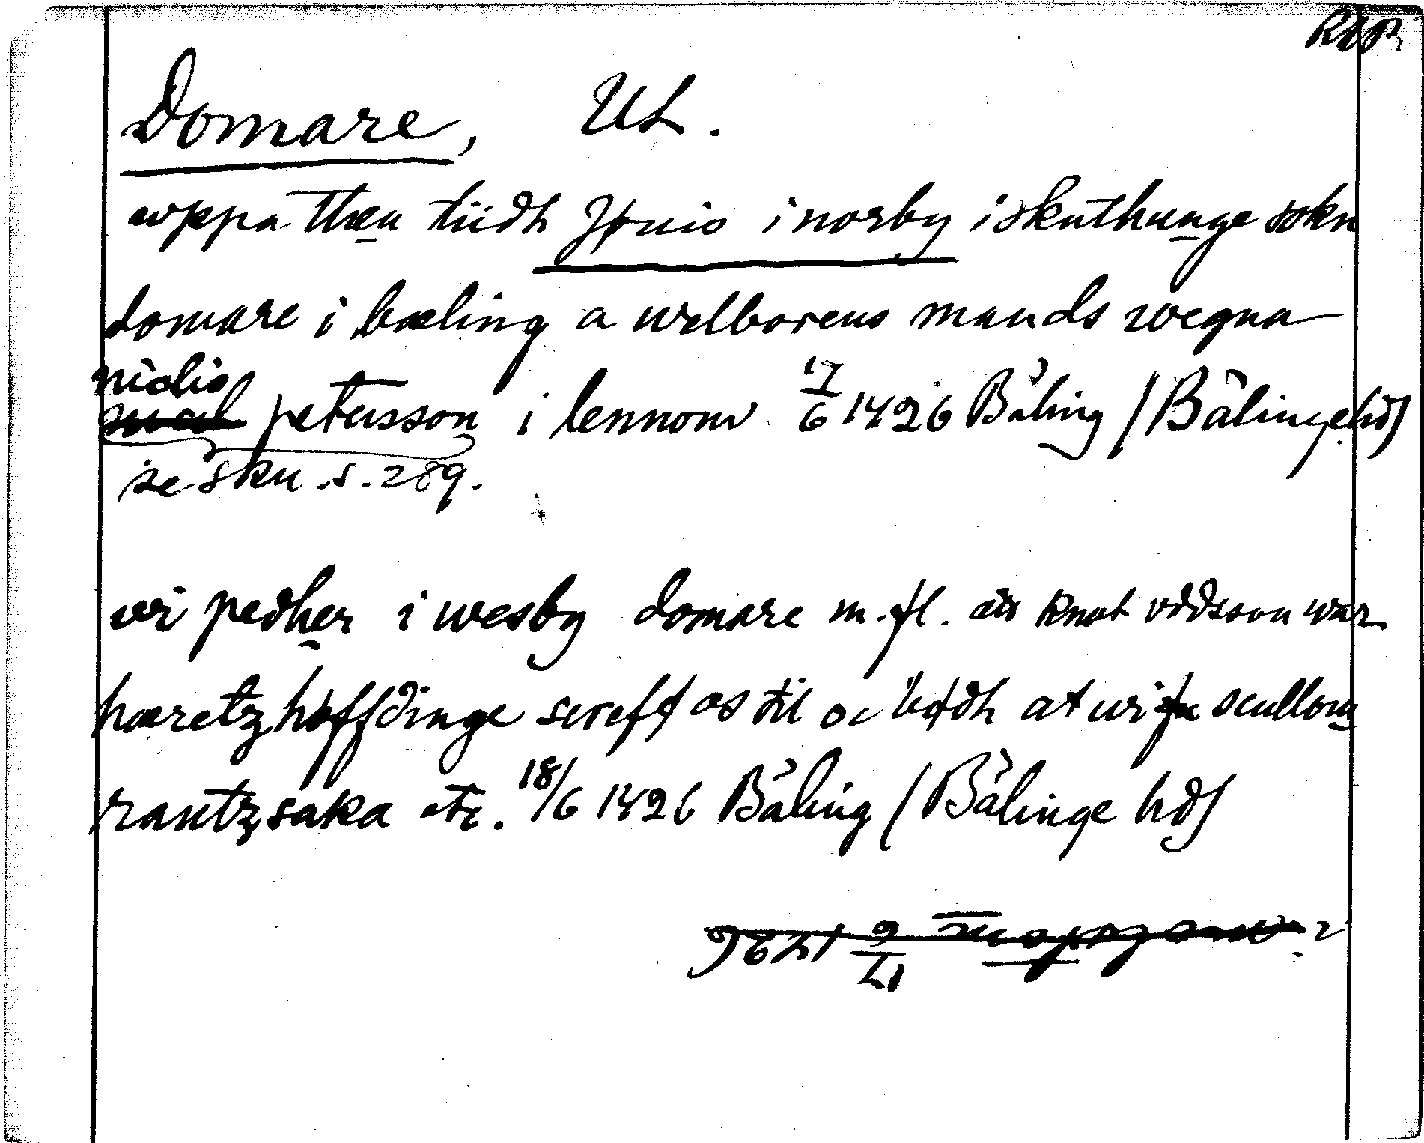 RAP
Domare, UL.
uppa then tiidh i norby i skuthunge sokn
domare i bæling a welborens mands wegna
niclis petersson i lennom 17/6 1426 Bäling / Bälinge hd /
se sku. s. 289.
wi pedher i wesby domare m.fl. knut oddsson war
hæretzhøffdinge screff os til oc bødh at wi scullom
rantzsaka etc. 18/6 1426 Bäling / Bälinge hd /
17/6 1426